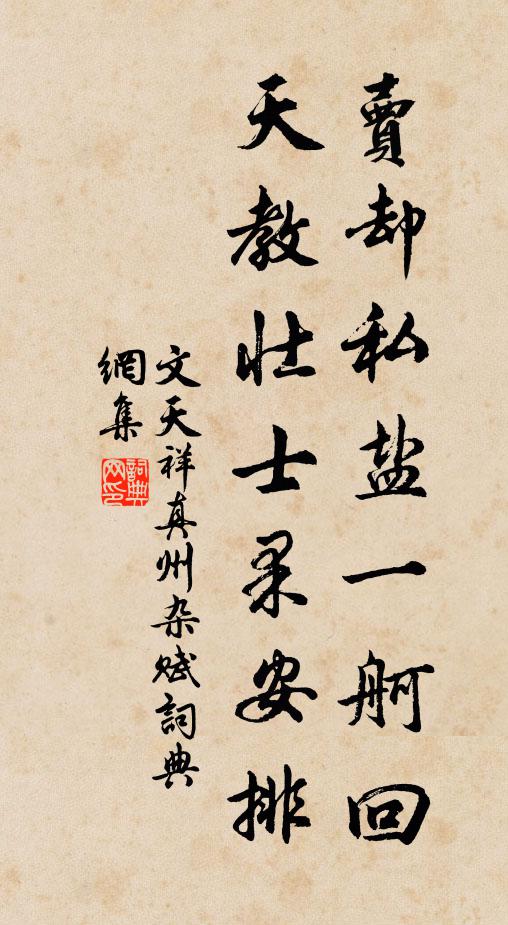 賣却私盐一舸回
天教壮士果安排
文天祥真州杂赋詞典
網集
詞典网印